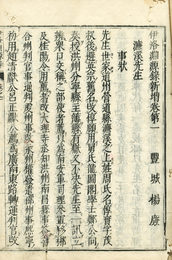 伊洛淵源錄新增卷第一 豐城 楊廉
濂溪先生
事狀
先生世家道州營道縣濂溪之上姓周氏名惇實字茂
叔後避英宗舊名改惇頤用舅氏龍圖閣學士鄭公向
奏授洪州分寧縣主簿縣有獄久不決先生至一訊立
辨衆口交稱之部使者薦以爲南安軍司理參軍移郴
及桂陽令用薦者改大理寺丞知洪州南昌縣事簽書
合州判官事通判虔州事改永州權發遣邵州事熙寧
初用趙清獻公呂正獻公薦爲廣南東路轉運判官改